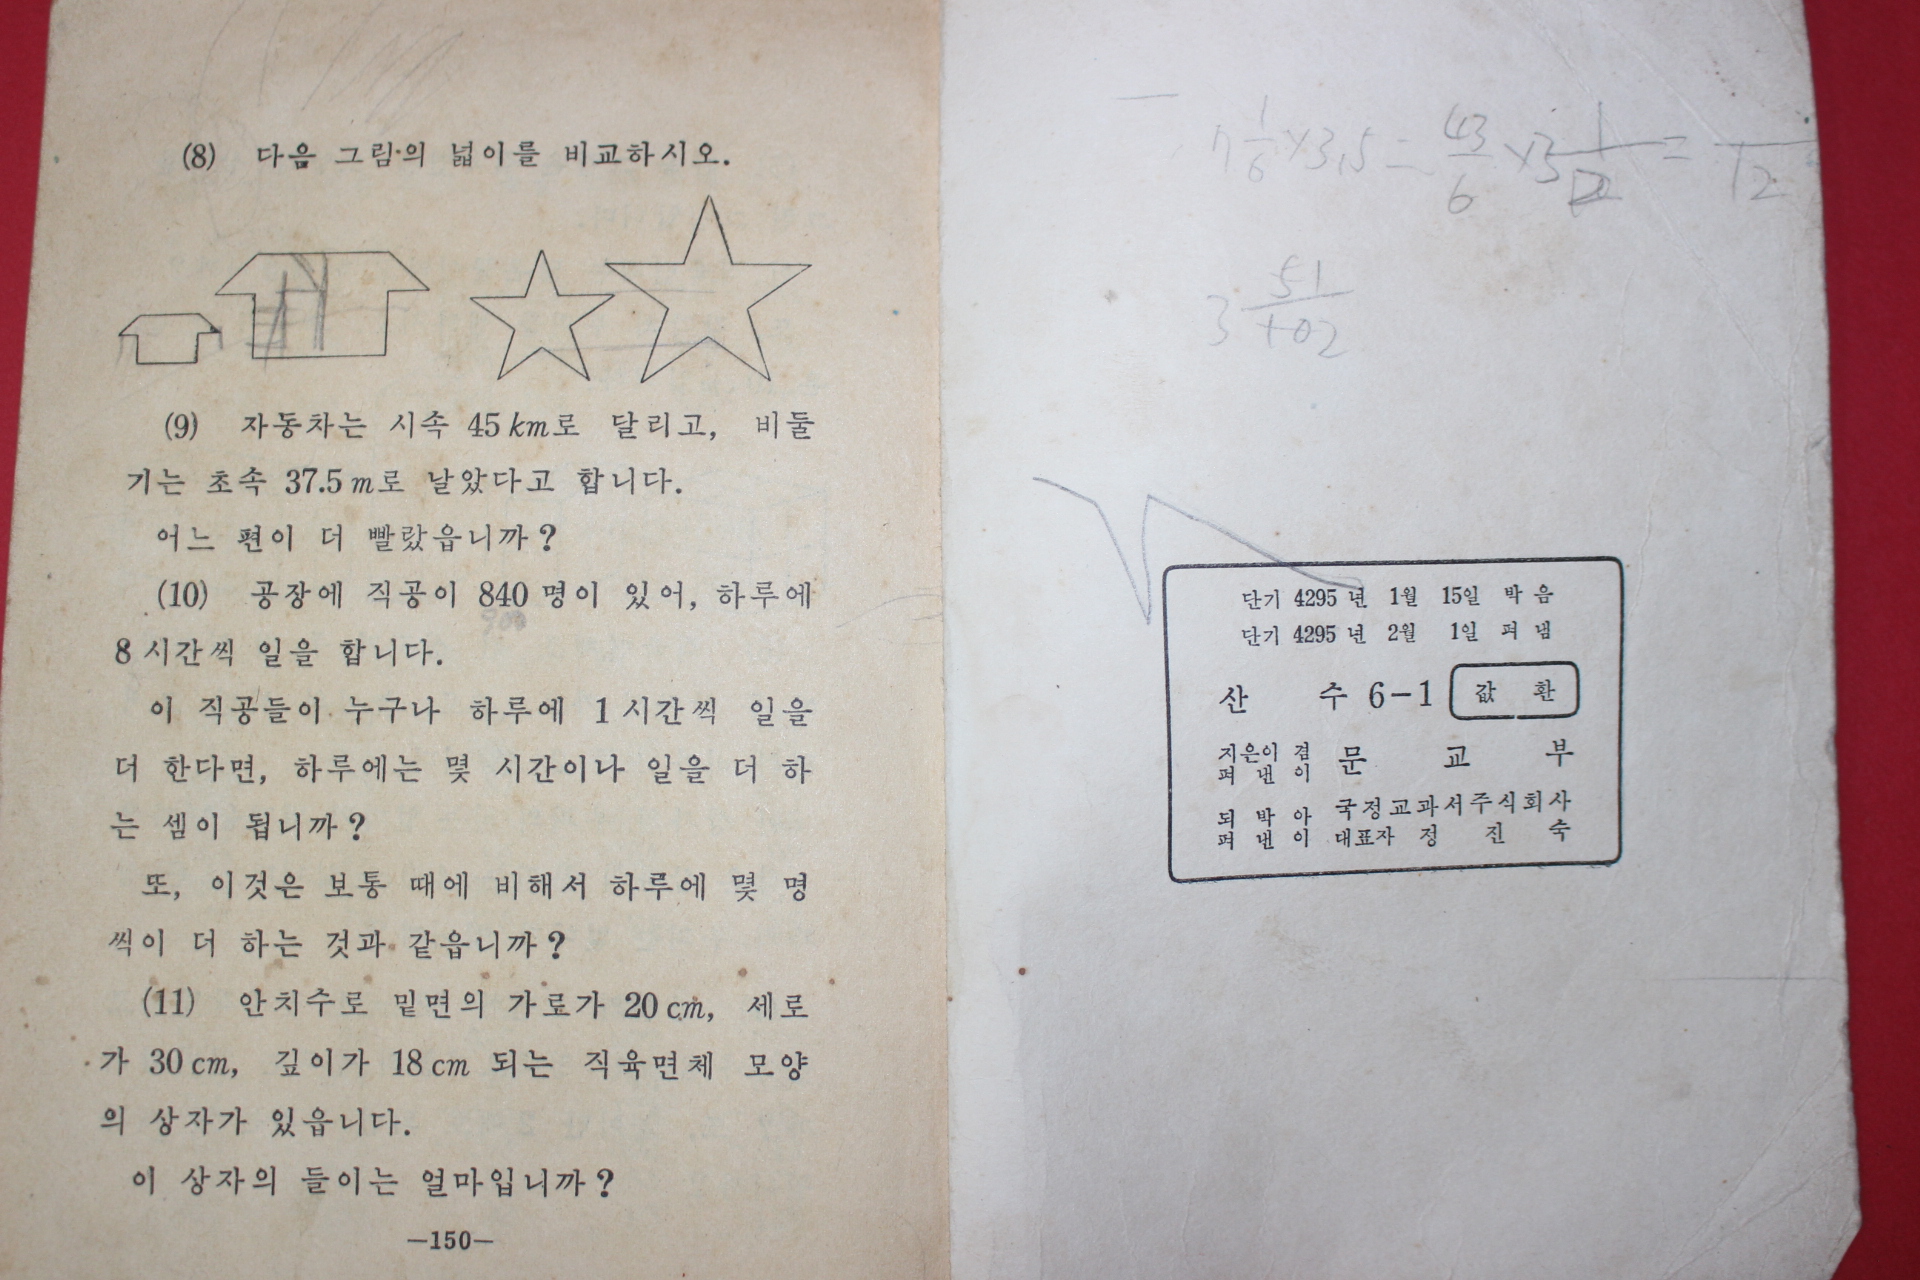 (8) 다음 그림의 넓이를 비교하시오.
(9) 자동차는 시속 45 km로 달리고, 비둘
기는 초속 37.5 m로 날았다고 합니다.
어느 편이 더 빨랐읍니까?
(10) 공장에 직공이 840 명이 있어, 하루에
900
8 시간씩 일을 합니다.
이 직공들이 누구나 하루에 1 시간씩 일을
더 한다면, 하루에는 몇 시간이나 일을 더 하
는 셈이 됩니까?
또, 이것은 보통 때에 비해서 하루에 몇 명
씩이 더 하는 것과 같읍니까?
(11) 안치수로 밑면의 가로가 20 cm, 세로
가 30 cm, 깊이가 18 cm 되는 직육면체 모양
의 상자가 있읍니다.
이 상자의 들이는 얼마입니까?
—150—
7 1/6 × 3.5 = 43/6 ×
단기 4295 년 1월 15일 박음
단기 4295 년 2월 1일 펴냄
산 수 6-1 값 환
지은이 겸 펴낸이 문 교 부
되박아 펴낸이 국정교과서주식회사
대표자 정 진 숙